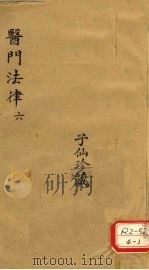 醫門法律 六
子仙珍藏
R2-52
4-1